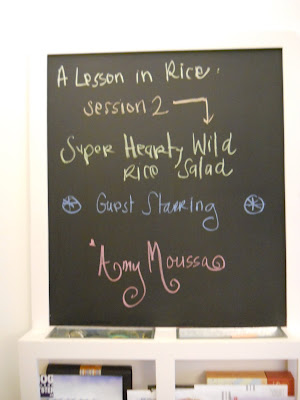 A Lesson in Rice.
Session 2
Super Hearty Wild
Rice Salad
Guest Starring
Amy Moussa